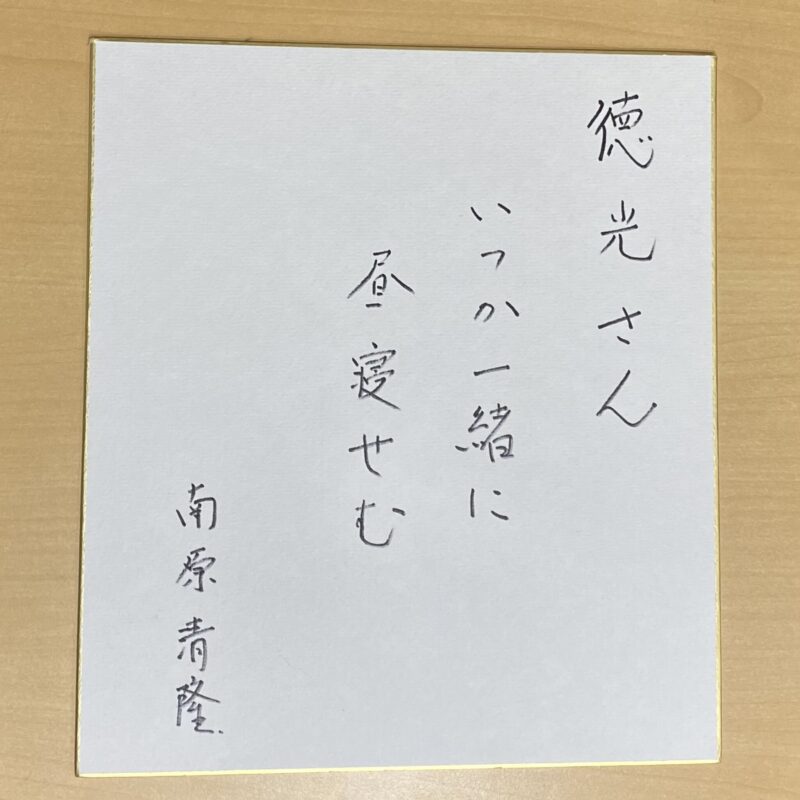 徳光さん
いつか一緒に
昼寝せむ
南原清隆